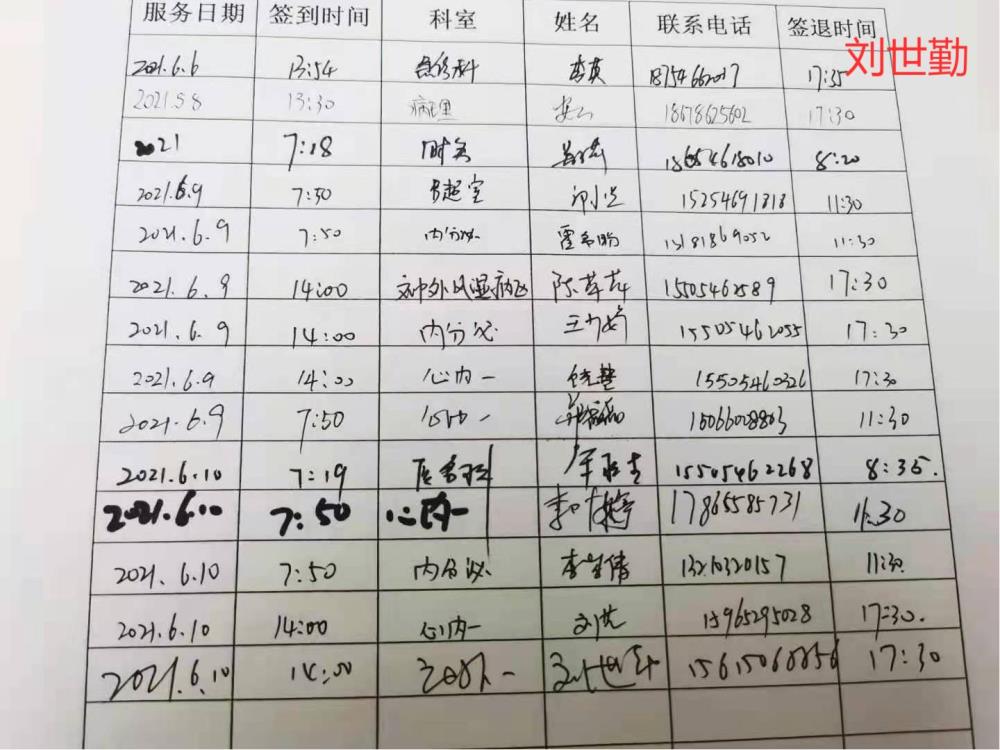 服务日期 签到时间 科室 姓名 联系电话 签退时间
刘世勤
2021.6.6 13:54 急诊科 李英 17:35
2021.5.8 13:30 病理 18678625602 17:30
2021 7:18 财务 18654618010 8:20
2021.6.9 7:50 B超室 15254691818 11:30
2021.6.9 7:50 内分泌 13181869052 11:30
2021.6.9 14:00 15505462589 17:30
2021.6.9 14:00 内分泌 15505462055 17:30
2021.6.9 14:00 心内一 15505460326 17:30
2021.6.9 7:50 心内一 15066008803 11:30
2021.6.10 7:19 15505462268 8:35.
2021.6.10 7:50 心内一 17865585731 11:30
2021.6.10 7:50 内分泌 李宝倩 13210320157 11:30
2021.6.10 14:00 心内一 刘洪 15965295028 17:30.
2021.6.10 14:00 刘世勤 15615060056 17:30